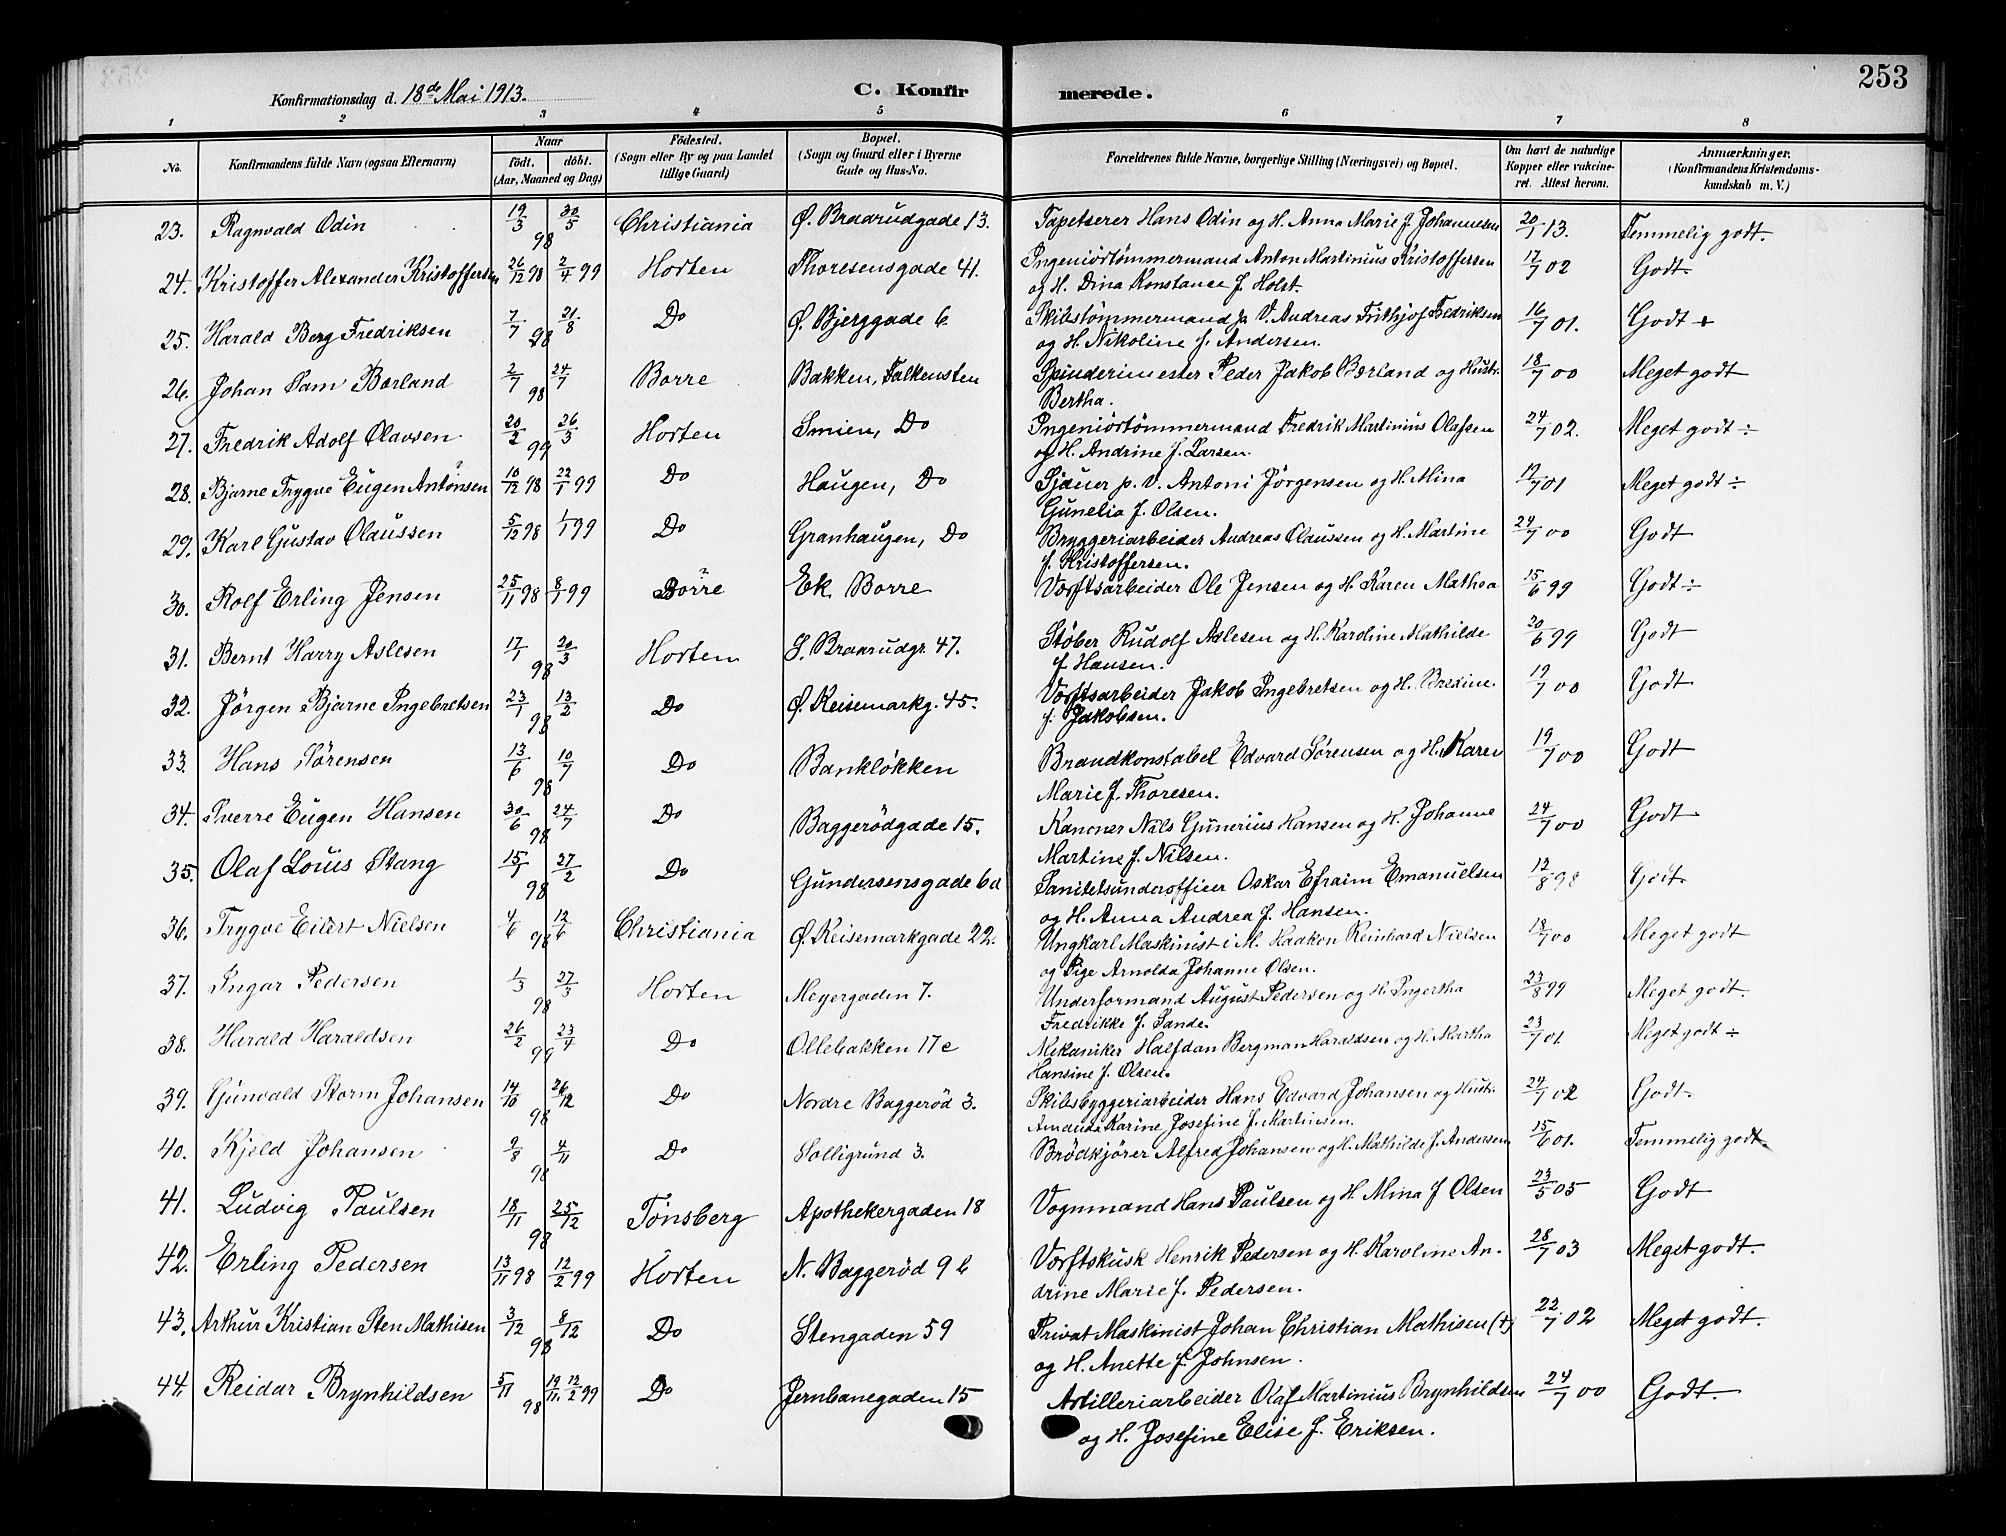 253
Konfirmationsdag d. 18de Mai 1913. C. Konfirmerede.
1 2 3 4 5 6 7 8
No. Konfirmandens fulde Navn (ogsaa Efternavn) Naar født. døbt. (Aar, Maaned og Dag) Fødested. (Sogn eller By og paa Landet tillige Gaard) Bopæl. (Sogn og Gaard eller i Byerne Gade og Hus-No. Forældrenes fulde Navne, borgerlige Stilling (Næringsvei) og Bopæl. Om havt de naturlige Kopper eller vakcineret. Attest herom. Anmærkninger. (Konfirmandens Kristendomskundskab m. V.)
23. Ragnvald Odin 19/3 30/5 98 Christiania Ø. Braarudgade 13. Tapetserer Hans Odin og H. Anna Marie f. Johannesen 20/1 13. Temmelig godt.
24. Kristoffer Alexander Kristoffersen 26/12 98 2/4 99 Horten Thoresensgade 41. Ingeniörtömmermand Anton Martinius Kristoffersen 17/7 02 Godt
og H. Dina Konstance f. Holst.
25. Harald Berg Fredriksen 7/7 21/8 98 Do Ø. Bjerggade 6 Skibstømmermand p. V. Andreas Frithjof Fredriksen 16/7 01. Godt +
og H. Nikoline f. Andersen.
26. Johan Sam Borland 2/7 24/7 98 Borre Bakken, Falkensten Spinderimester Peder Jakob Børland og Hustr. 18/7 00 Meget godt
Bertha.
27. Fredrik Adolf Olavsen 20/2 26/3 99 Horten Smien, Do Ingeniörtömmermand Fredrik Martinius Olafsen 24/7 02. Meget godt ÷
og H. Andrine f. Larsen.
28. Bjarne Trygve Eugen Antonsen 10/12 98 22/1 99 Do Haugen, Do Sjauer p. V. Antoni Jörgensen og H. Mina 17/7 01 Meget godt ÷
Gunelia f. Olsen.
29. Karl Gustav Olaussen 5/12 98 1/1 99 Do Granhaugen, Do Bryggeriarbeider Andreas Olaussen og H. Martine 24/7 00 Godt
f. Kristoffersen.
30. Rolf Erling Jensen 25/11 98 8/1 99 Borre Ek Borre Verftsarbeider Ole Jensen og H. Karen Mathea 15/6 99 Godt ÷
31. Bernt Harry Aslesen 17/1 20/3 98 Horten S. Braarudgr. 47. Støber Rudolf Aslesen og H. Karoline Mathilde 20/6 99 Godt
f. Hansen.
32. Jörgen Bjarne Ingebretsen 23/1 13/2 98 Do Ø. Keisemarkg. 45. Verftsarbeider Jakob Ingebretsen og H. Bredine 19/7 00 Godt
f. Jakobsen.
33. Hans Sørensen 13/6 10/7 98 Do Bankløkken Brandkonstabel Edvard Sørensen og H. Karen 19/7 00 Godt
Marie f. Thoresen.
34. Sverre Eugen Hansen 30/6 24/7 98 Do Baggerödgade 15. Kanoner Nils Gunerius Hansen og H. Johanne 24/7 00 Godt
Martine f. Nilsen.
35. Olaf Louis Stang 15/1 27/2 98 Do Gundersensgade 6d Sanitetsunderofficer Oskar Efraim Emanuelsen 12/8 98 Godt
og H. Anna Andrea f. Hansen.
36. Trygve Eilert Nielsen 4/6 12/6 98 Christiania Ø. Keisemarkgade 22. Ungkarl Maskinist i M. Haakon Reinhard Nielsen 18/7 00 Meget godt
og Pige Arnolda Johanne Olsen.
37. Ingar Pedersen 1/3 27/3 98 Horten Meyergaden 7. Underformand August Pedersen og H. Ingertha 23/8 99 Meget godt.
Fredrikke f. Sande.
38. Harald Haraldsen 26/2 23/4 99 Do Ollebakken 17c Mekaniker Halfdan Bergman Haraldsen og H. Martha 23/7 01. Meget godt ÷
Hansine f. Olsen.
39. Gunvald Storm Johansen 14/10 26/12 98 Do Nordre Baggerød 3. Skibsbyggeriarbeider Hans Edvard Johansen og Hustr. 24/7 02 Godt
Amanda Karine Josefine f. Martinsen.
40. Kjeld Johansen 9/8 4/11 98 Do Solligrund 3. Brødkjører Alfred Johansen og H. Mathilde f. Andersen 15/6 01. Temmelig godt
41. Ludvig Paulsen 18/11 25/12 98 Tønsberg Apothekergaden 18 Vognmand Hans Paulsen og H. Mina f Olsen 23/5 05 Godt
42. Erling Pedersen 13/11 98 12/2 99 Horten N. Baggerød 9 b Verftskusk Henrik Pedersen og H. Karoline An- 28/7 03 Meget godt.
drine Marie f. Pedersen.
43. Arthur Kristian Sten Mathisen 3/12 8/12 98 Do Stengaden 59 Privat Maskinist Johan Christian Mathisen (+) 22/7 02 Meget godt.
og H. Anette f. Johnsen.
44. Reidar Brynhildsen 5/11 98 19/11 12/2 99 Do Jernbanegaden 15 Artilleriarbeider Olaf Martinius Brynhildsen 24/7 00 Godt.
og H. Josefine Elise f. Eriksen.